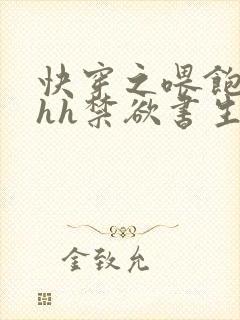 快穿之喂飽
hh禁欲書生
金致允